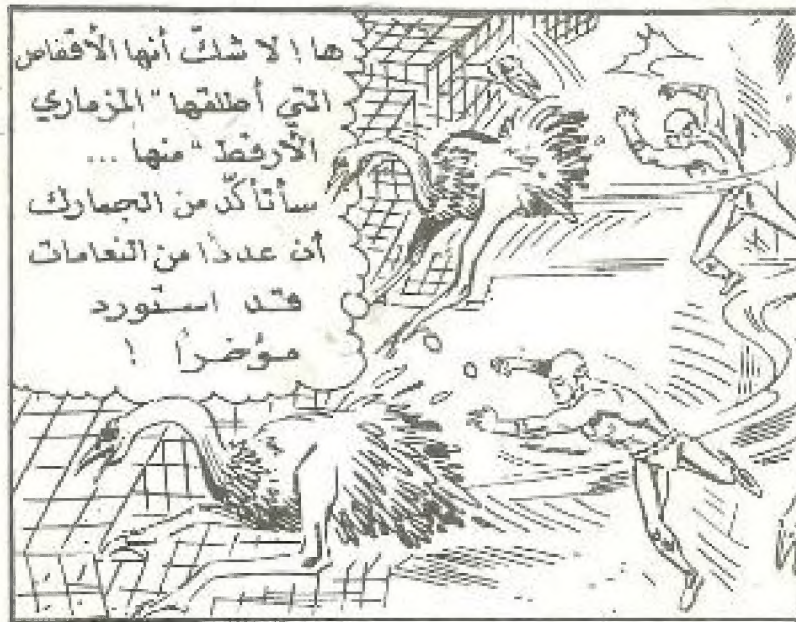 ها! لا شكّ أنها الأقفاص
التي أطلقها "المزماري
الأرقط" منها ...
سأتأكّد من الجمارك
أن عددًا من النعامات
قد استورد
مؤخراً !